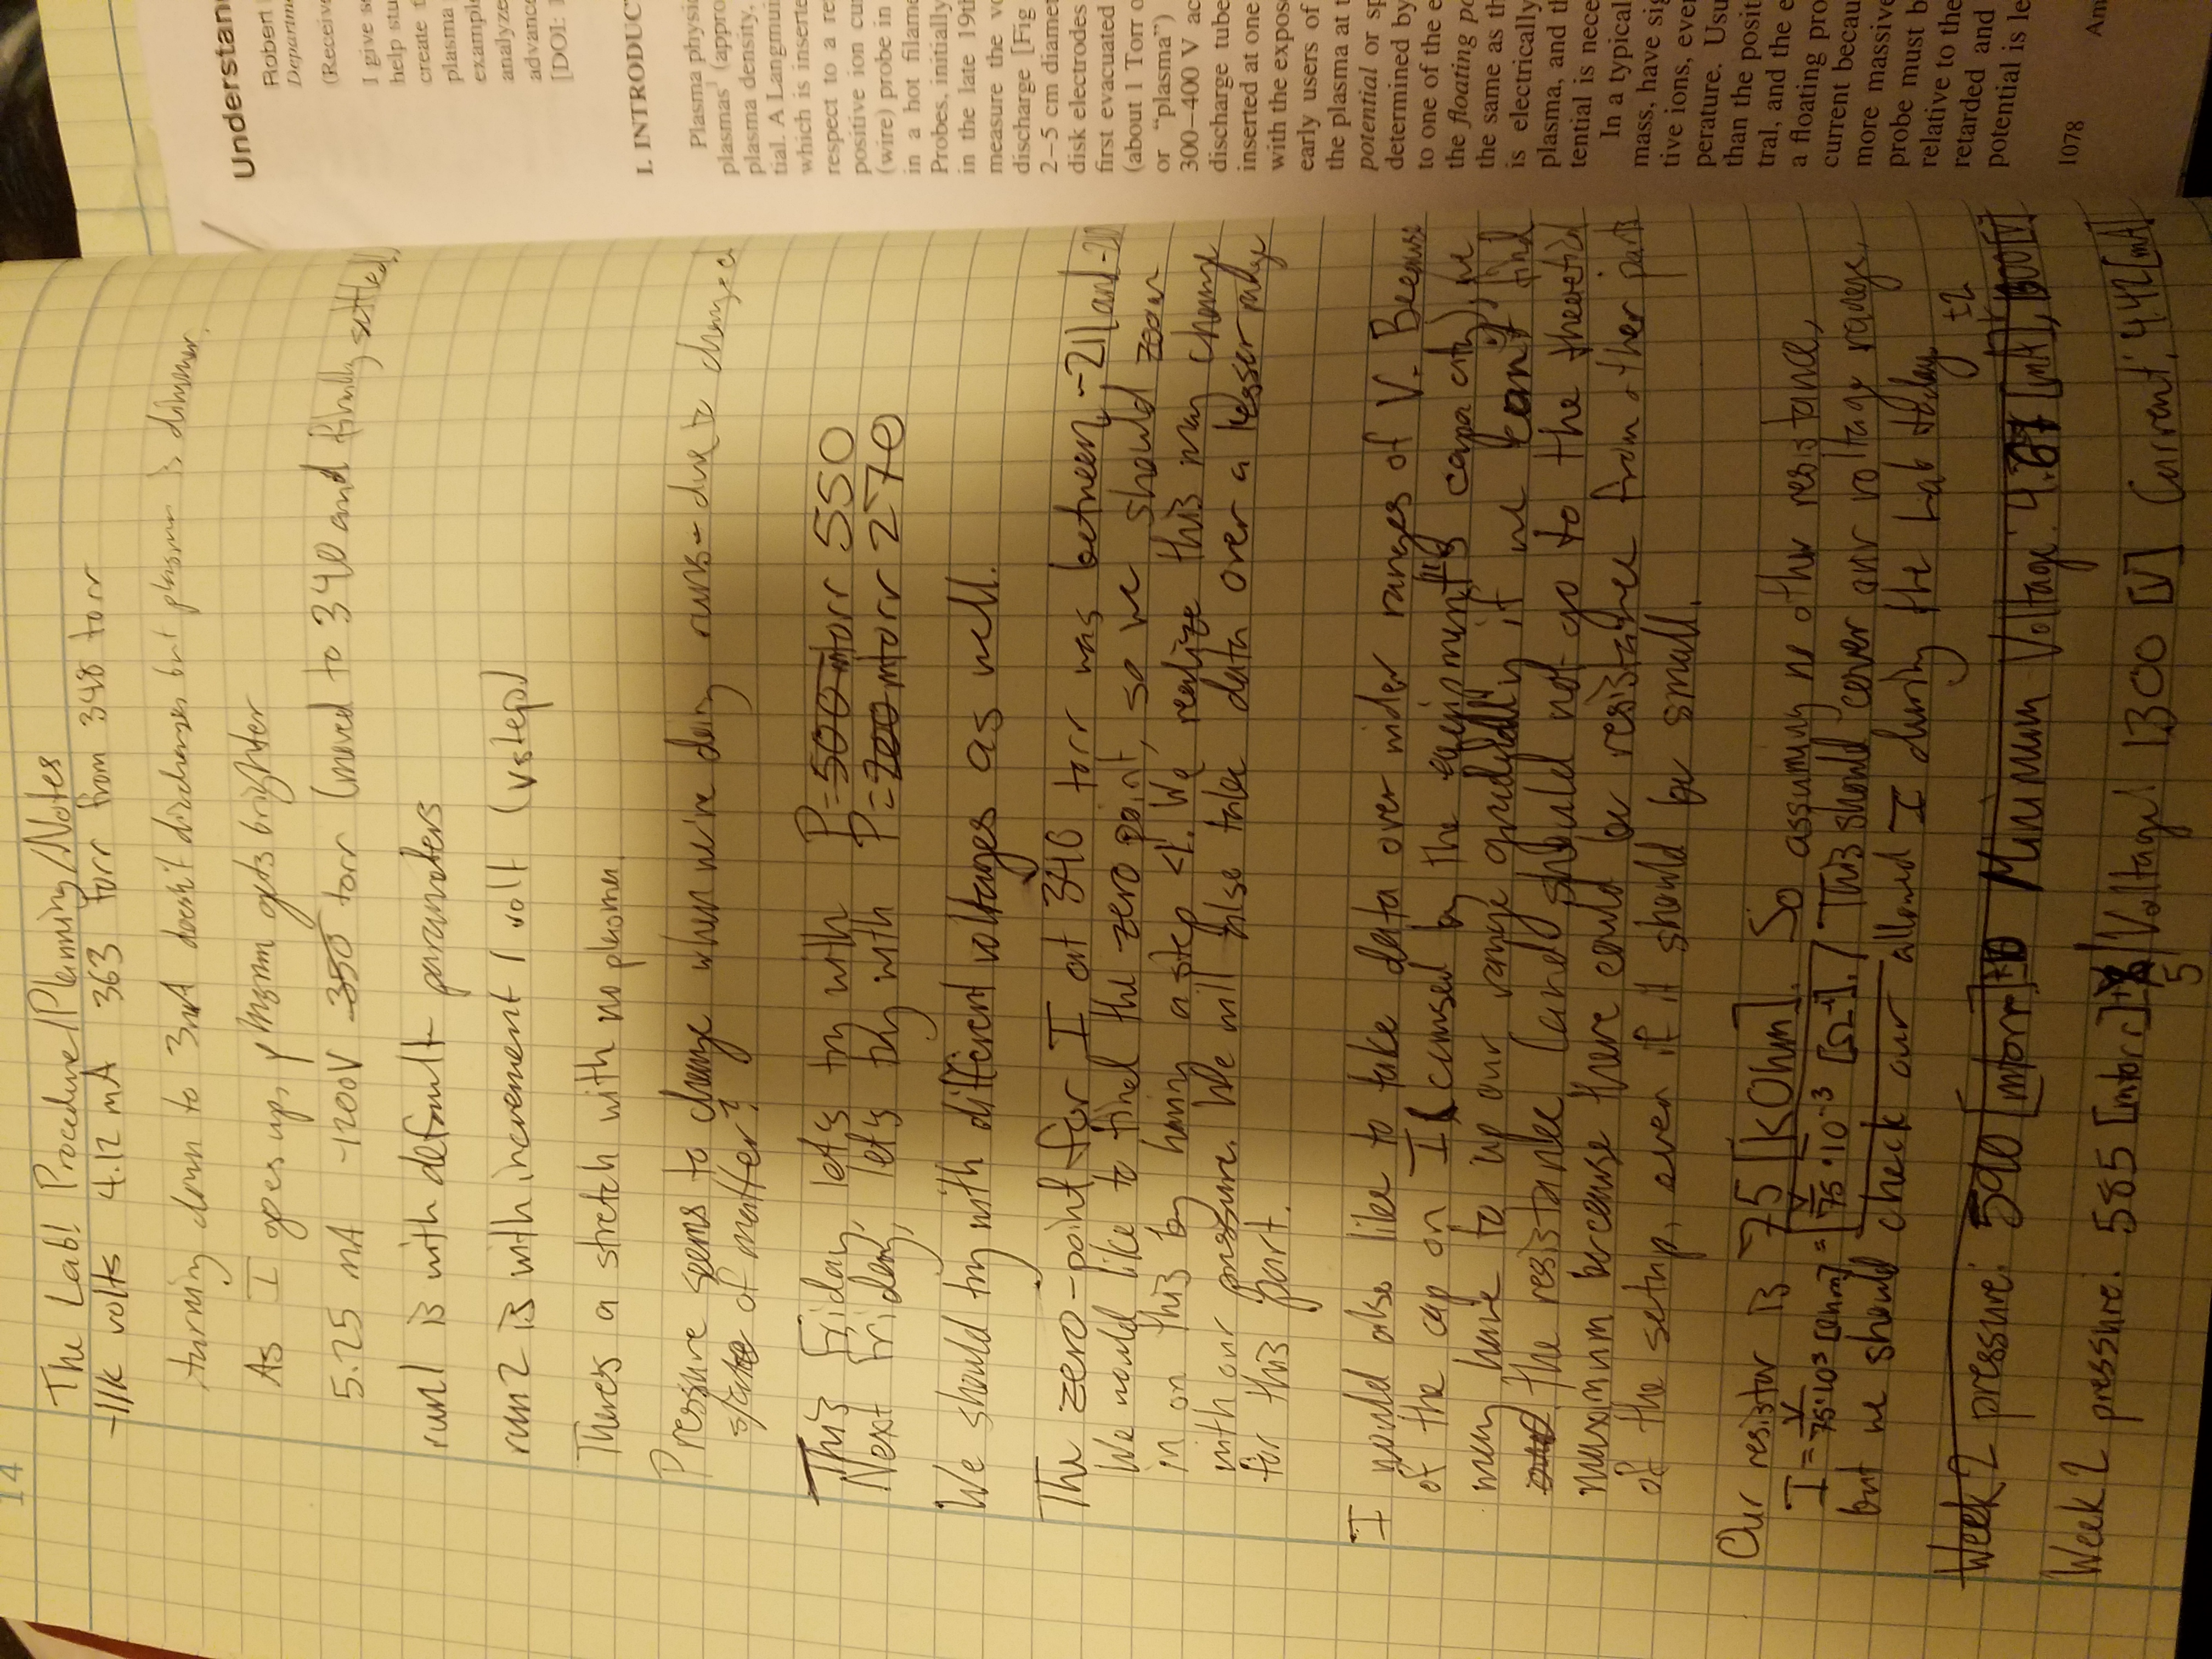 14
The Lab! Procedure/Planning/Notes
-11k volts 4.12 mA 363 torr from 348 torr
turning down to 3mA doesn't discharges but plasma is dimmer.
As I goes up, plasma gets brighter
5.25 mA -1200V 350 torr (moved to 340 and finally settled!)
run1 is with default parameters
run2 is with increment 1 volt (vstep)
There's a stretch with no plasma.
Pressure seems to change when we're doing runs - due to changed
state of matter?
This Friday, let's try with P=500 mtorr 550
Next Friday, let's try with P=200 mtorr 270
We should try with different voltages as well.
The zero-point for I at 340 torr was between -211 and
We would like to find the zero point, so we should zoom
in on this by having a step <1. We realize this may change
with our pressure. We will also take data over a lesser range
for this part.
I would also like to take data over wider ranges of V. Because
of the cap on I (caused by the equipment's capacity), we
may have to up our range gradually if we can't find
the resistance (and should not go to the theoretical
maximum because there could be resistance from other parts
of the setup, even if it should be small.
Our resistor is 75 [kOhm]. So assuming no other resistance,
I = V/75·10³ [Ohm] = V/75·10⁻³ [Ω⁻¹]. This should cover our voltage range,
but we should check our allowed I during the Lab today.
Week 2 pressure: 590 [mtorr] ±10 Minimum Voltage: [mA], [V]
±2
Week 2 pressure: 585 [mtorr] ± 5 Voltage: 1300 [V] Current: 4.42 [mA]
Understan
Robert
Departm
(Receiv
I give s
help stu
create t
plasma
exampl
analyze
advance
[DOI:
I. INTRODUC
Plasma physi
plasmas¹ (appro
plasma density,
tial. A Langmui
which is inserte
respect to a re
positive ion cu
(wire) probe in
in a hot filame
Probes, initially
in the late 19th
measure the vo
discharge [Fig
2–5 cm diamet
disk electrodes
first evacuated
(about 1 Torr o
or “plasma”)
300–400 V ac
discharge tube
inserted at one
with the expos
early users of
the plasma at t
potential or sp
determined by
to one of the e
the floating po
the same as th
is electrically
plasma, and th
tential is nece
In a typical
mass, have sig
tive ions, eve
perature. Usu
than the posit
tral, and the e
a floating pro
current becau
more massive
probe must b
relative to the
retarded and
potential is le
1078
Am